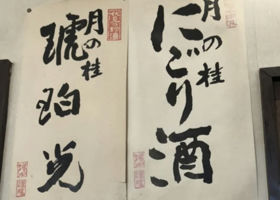 月の桂
にごり酒
月の桂
琥珀光